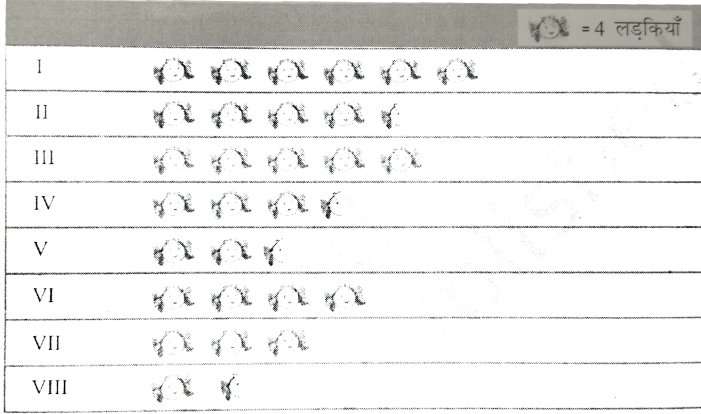 = 4 लड़कियाँ
I
II
III
IV
V
VI
VII
VIII